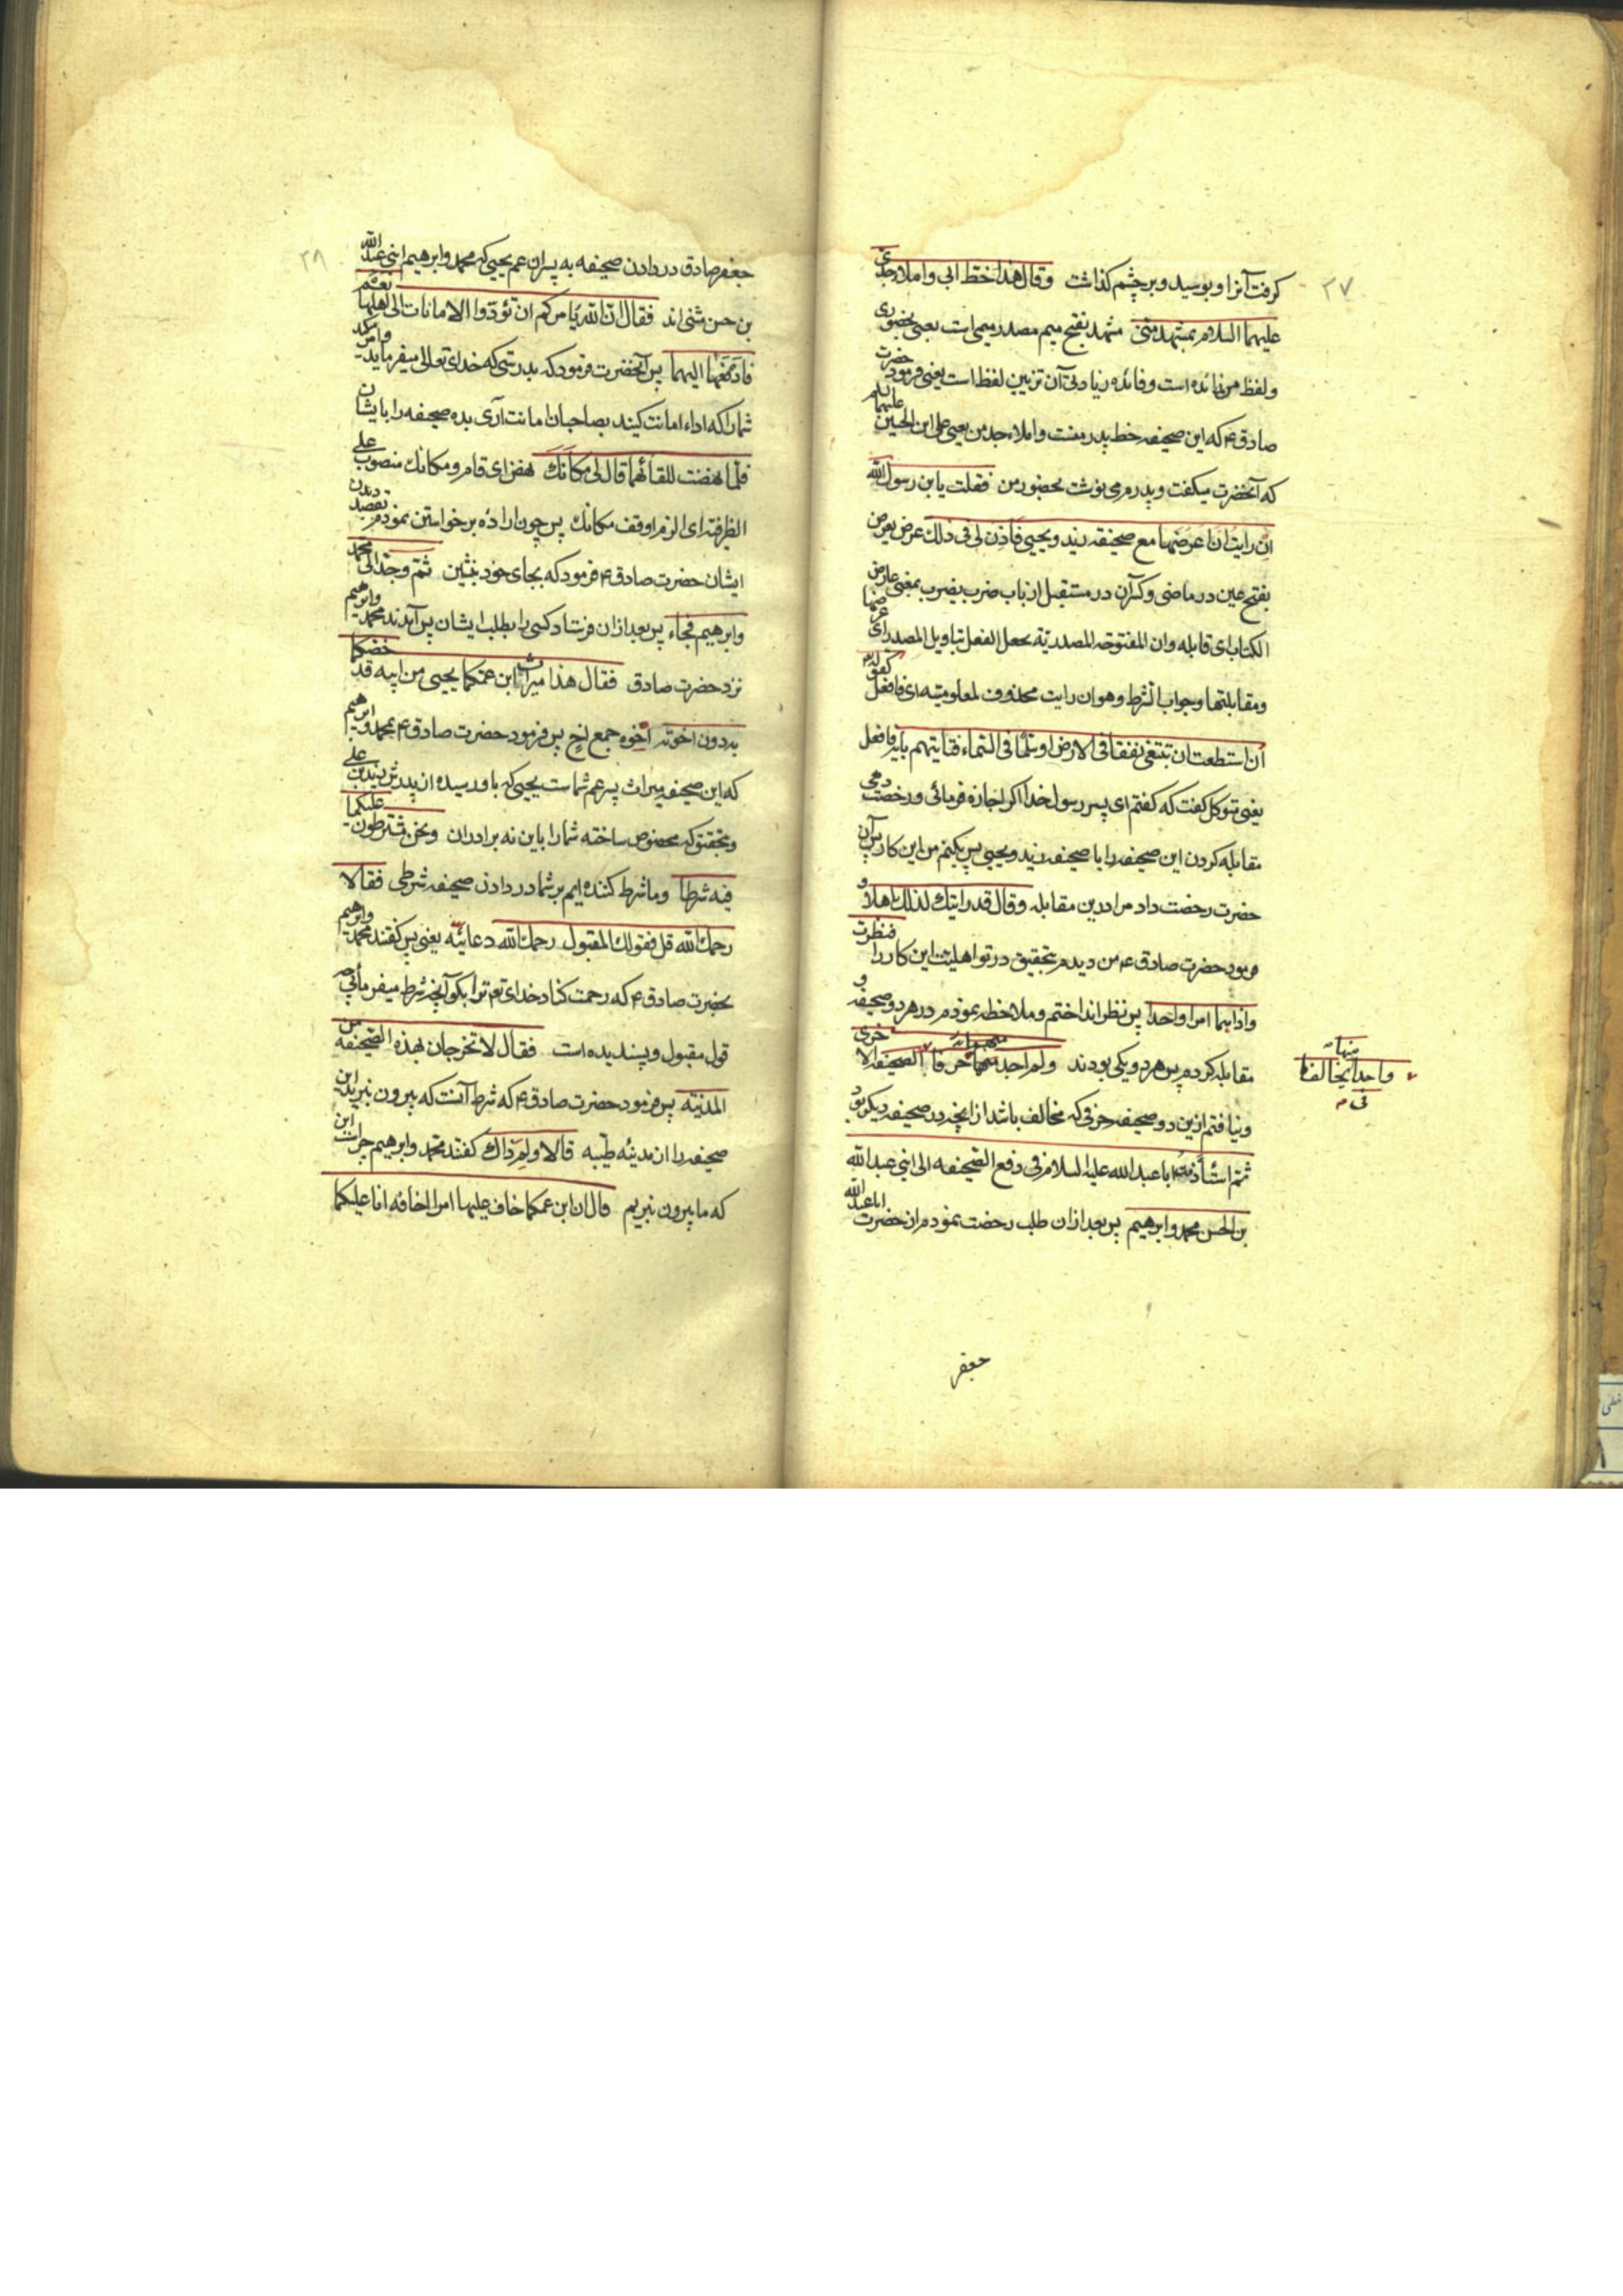 ۳۷
گرفت آنرا و بوسید و بر چشم گذاشت وقال هذا خط ابی و املاء جدی
علیهما السلام بمشهد منی مشهد بفتح میم مصدر میمی است یعنی بحضوری
ولفظ من زائده است وفائده زیادتی آن تزیین لفظ است یعنی فرمود حضرت
صادق ع که این صحیفه خط پدر منست واملاء جد من یعنی علی ابن الحسین علیهما السلام
که آنحضرت میگفت وپدرم می نوشت بحضور من فقلت یابن رسول الله
ان رایت ان اعرضها مع صحیفه زید ویحیی فاذن لی فی ذلک عرض یعرض
بفتح عین در ماضی وکسر آن در مستقبل از باب ضرب یضرب بمعنی عارض
الکتاب ای قابله وان المفتوحه المصدریة یجعل الفعل بتاویل المصدر ای عرضها
ومقابلتها وجواب الشرط وهو ان رایت محذوف لمعلومیته ای فافعل کقوله تم
ان استطعت ان تبتغی نفقا فی الارض او سلما فی السماء فتاتیهم بآیه فافعل
یعنی متوکل گفت که گفتم ای پسر رسول خدا اگر اجازه فرمائی ورخصت دهی
مقابله کردن این صحیفه را با صحیفه زید ویحیی پس بکنم من این کار پس آن
حضرت رخصت داد مرا درین مقابله وقال قد رایتک لذلک اهلا و
فرمود حضرت صادق ع من دیدم بتحقیق در تو اهلیت این کار را فنظرت
واذا هما امرا واحدا پس نظر انداختم وملاحظه نمودم در هر دو صحیفه و
مقابله کردم پس هر دو یکی بودند ولم اجد منها حرفا الصحیفه الاخری
منها
واحدا یخالف ما
فی
ونیافتم ازین دو صحیفه حرفی که مخالف باشد از آنچه در صحیفه دیگر بود
ثم استأذنت ابا عبد الله علیه السلام فی دفع الصحیفه الی ابنی عبد الله
بن الحسن محمد وابرهیم پس بعد از آن طلب رخصت نمودم از حضرت ابا عبد الله
جعفر
۳۸
جعفر صادق در دادن صحیفه به پسران عم یحیی که محمد وابرهیم ابنی عبد الله
بن حسن مثنی اند فقال ان الله یامرکم ان تؤدوا الامانات الی اهلها نعم
فادفعها الیهما پس آنحضرت فرمود که بدرستی که خدای تعالی میفرماید وامر کند
شما را که اداء امانت کنید بصاحبان امانت آری بده صحیفه را بایشان
فلما نهضت للقائهما قال لی مکانک نهض ای قام ومکانک منصوب علی
الظرفته ای الزم او قف مکانک پس چون اراده برخواستن نمودم بقصد دیدن
ایشان حضرت صادق ع فرمود که بجای خود بنشین ثم وجه الی محمد
وابرهیم فجاء پس بعد از آن فرستاد کسی را بطلب ایشان پس آمدند محمد وابرهیم
نزد حضرت صادق فقال هذا میراث ابن عمکما یحیی من ابیه قد خصکما
به دون اخوته اخوه جمع اخ پس فرمود حضرت صادق ع بمحمد و ابرهیم
که این صحیفه میراث پسر عم شماست یحیی که باو رسیده از پدرش زید بن علی
وبتحقیق که مخصوص ساخته شما را باین نه برادران ونحن مشترطون علیکما
فیه شرطا وما شرط کننده ایم بر شما در دادن صحیفه شرطی فقالا
رحمک الله قل فقولک المقبول رحمک الله دعائیه یعنی پس گفتند محمد وابرهیم
بحضرت صادق ع که رحمت کناد خدای تع ترا بگو آنچه شرط میفرمائی چه
قول مقبول وپسندیده است فقال لا تخرجان بهذه الصحیفه من
المدنیه پس فرمود حضرت صادق ع که شرط آنست که بیرون نبرید این
صحیفه را از مدینه طیبه قالا ولم ذاک گفتند محمد وابرهیم چراست این
که ما بیرون نبریم قال ان ابن عمکما خاف علیها امرا اخافه انا علیکما